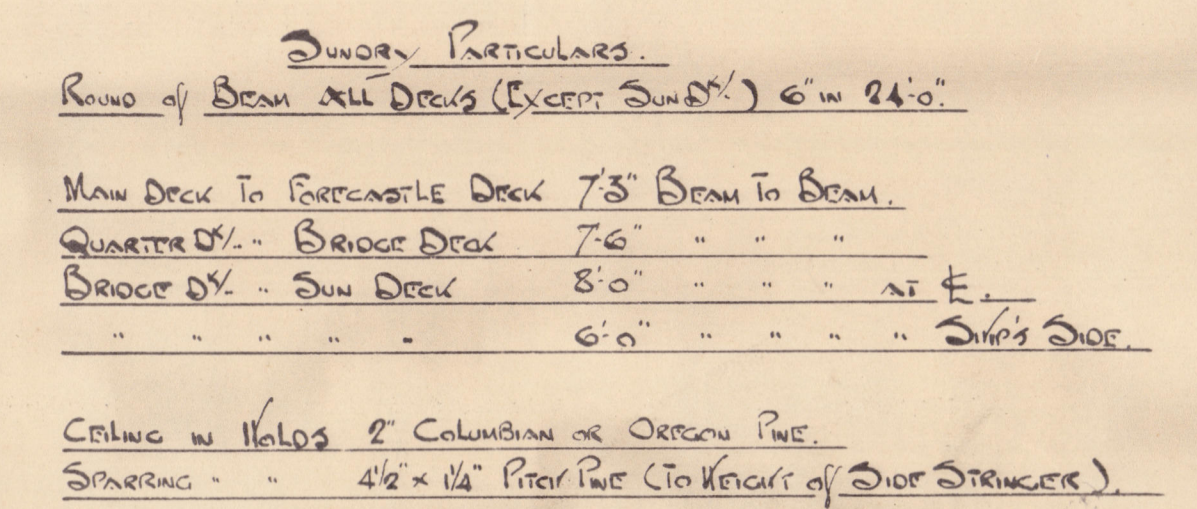 SUNDRY PARTICULARS.
ROUND of BEAM ALL DECKS (EXCEPT SUN DK/.) 6" IN 24'-0".
MAIN DECK TO FORECASTLE DECK 7'-3" BEAM TO BEAM.
QUARTER DK/. " BRIDGE DECK 7'-6" " " "
BRIDGE DK/. " SUN DECK 8'-0" " " " AT ℄.
" " " " " 6'-0" " " " " SHIP'S SIDE.
CEILING IN HOLDS 2" COLUMBIAN OR OREGON PINE.
SPARRING " " 4½" × 1¼" PITCH PINE (TO HEIGHT of SIDE STRINGER).